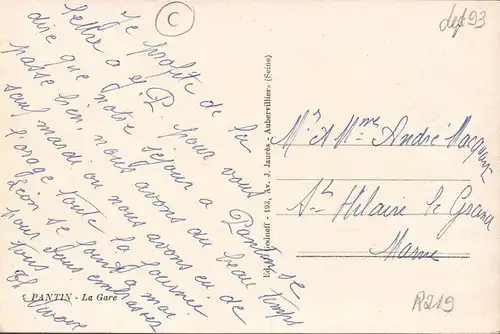 Je profite de la
lettre a P. pour vous
dire que notre séjour a Pantin se
passe bien, nous avons du beau temps
sauf mardi ou nous avons eu de
l'orage toute la journée
Léon se joint a moi
pour vous embrasser
tous
PANTIN - La Gare
Edit. - 153, Av. J. Jaurès - Aubervilliers (Seine)
Mr et Mme André
St Hilaire le Grand
Marne
C
dept 93
R219